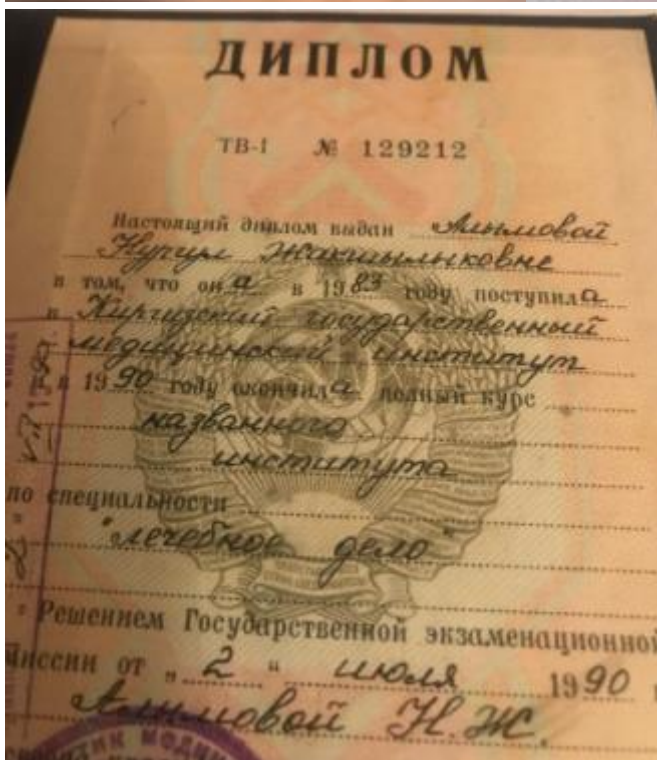 ДИПЛОМ
ТВ-I № 129212
Настоящий диплом выдан Алымовой
Жакшылыковне
в том, что она в 1983 году поступила
в Киргизский государственный
медицинский институт
в 1990 году окончила полный курс
названного
института
по специальности
"лечебное дело"
Решением Государственной экзаменационной
миссии от „2“ июля 1990 г
Алымовой Н.Ж.